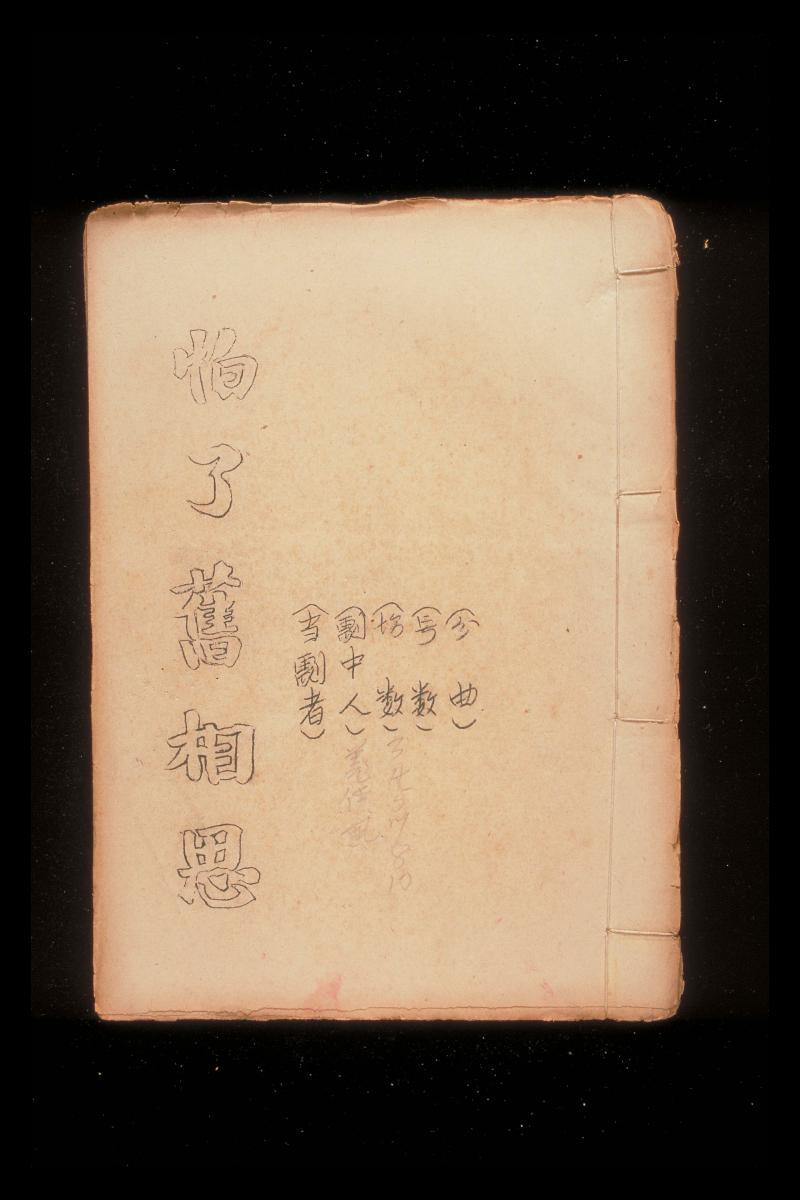 (分曲)
(号数)
(場数)
(劇中人)
(当劇者)
怕了舊相思